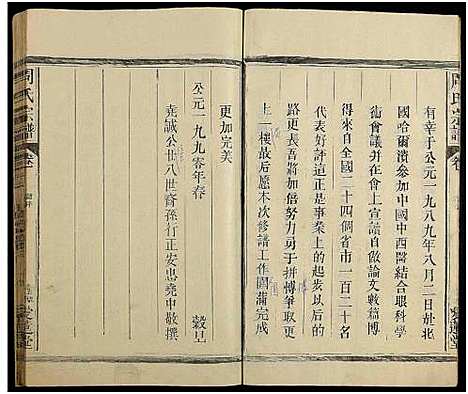 周氏宗譜
卷
有幸于公元一九八九年八月二日赴北
國哈爾濱參加中國中西醫結合眼科學
術會議并在會上宣讀自做論文數稿博
得來自全國二十四個省市一百二十名
代表好評這正是事業上的起步以后的
路更長吾將加倍努力勇于拼搏争取更
上一樓故后愿本次修譜工作圆滿完成
更加完美
公元一九九零年春 穀旦
堯誠公廿八世裔孫行正安忠堯中敬撰
周氏宗譜
卷